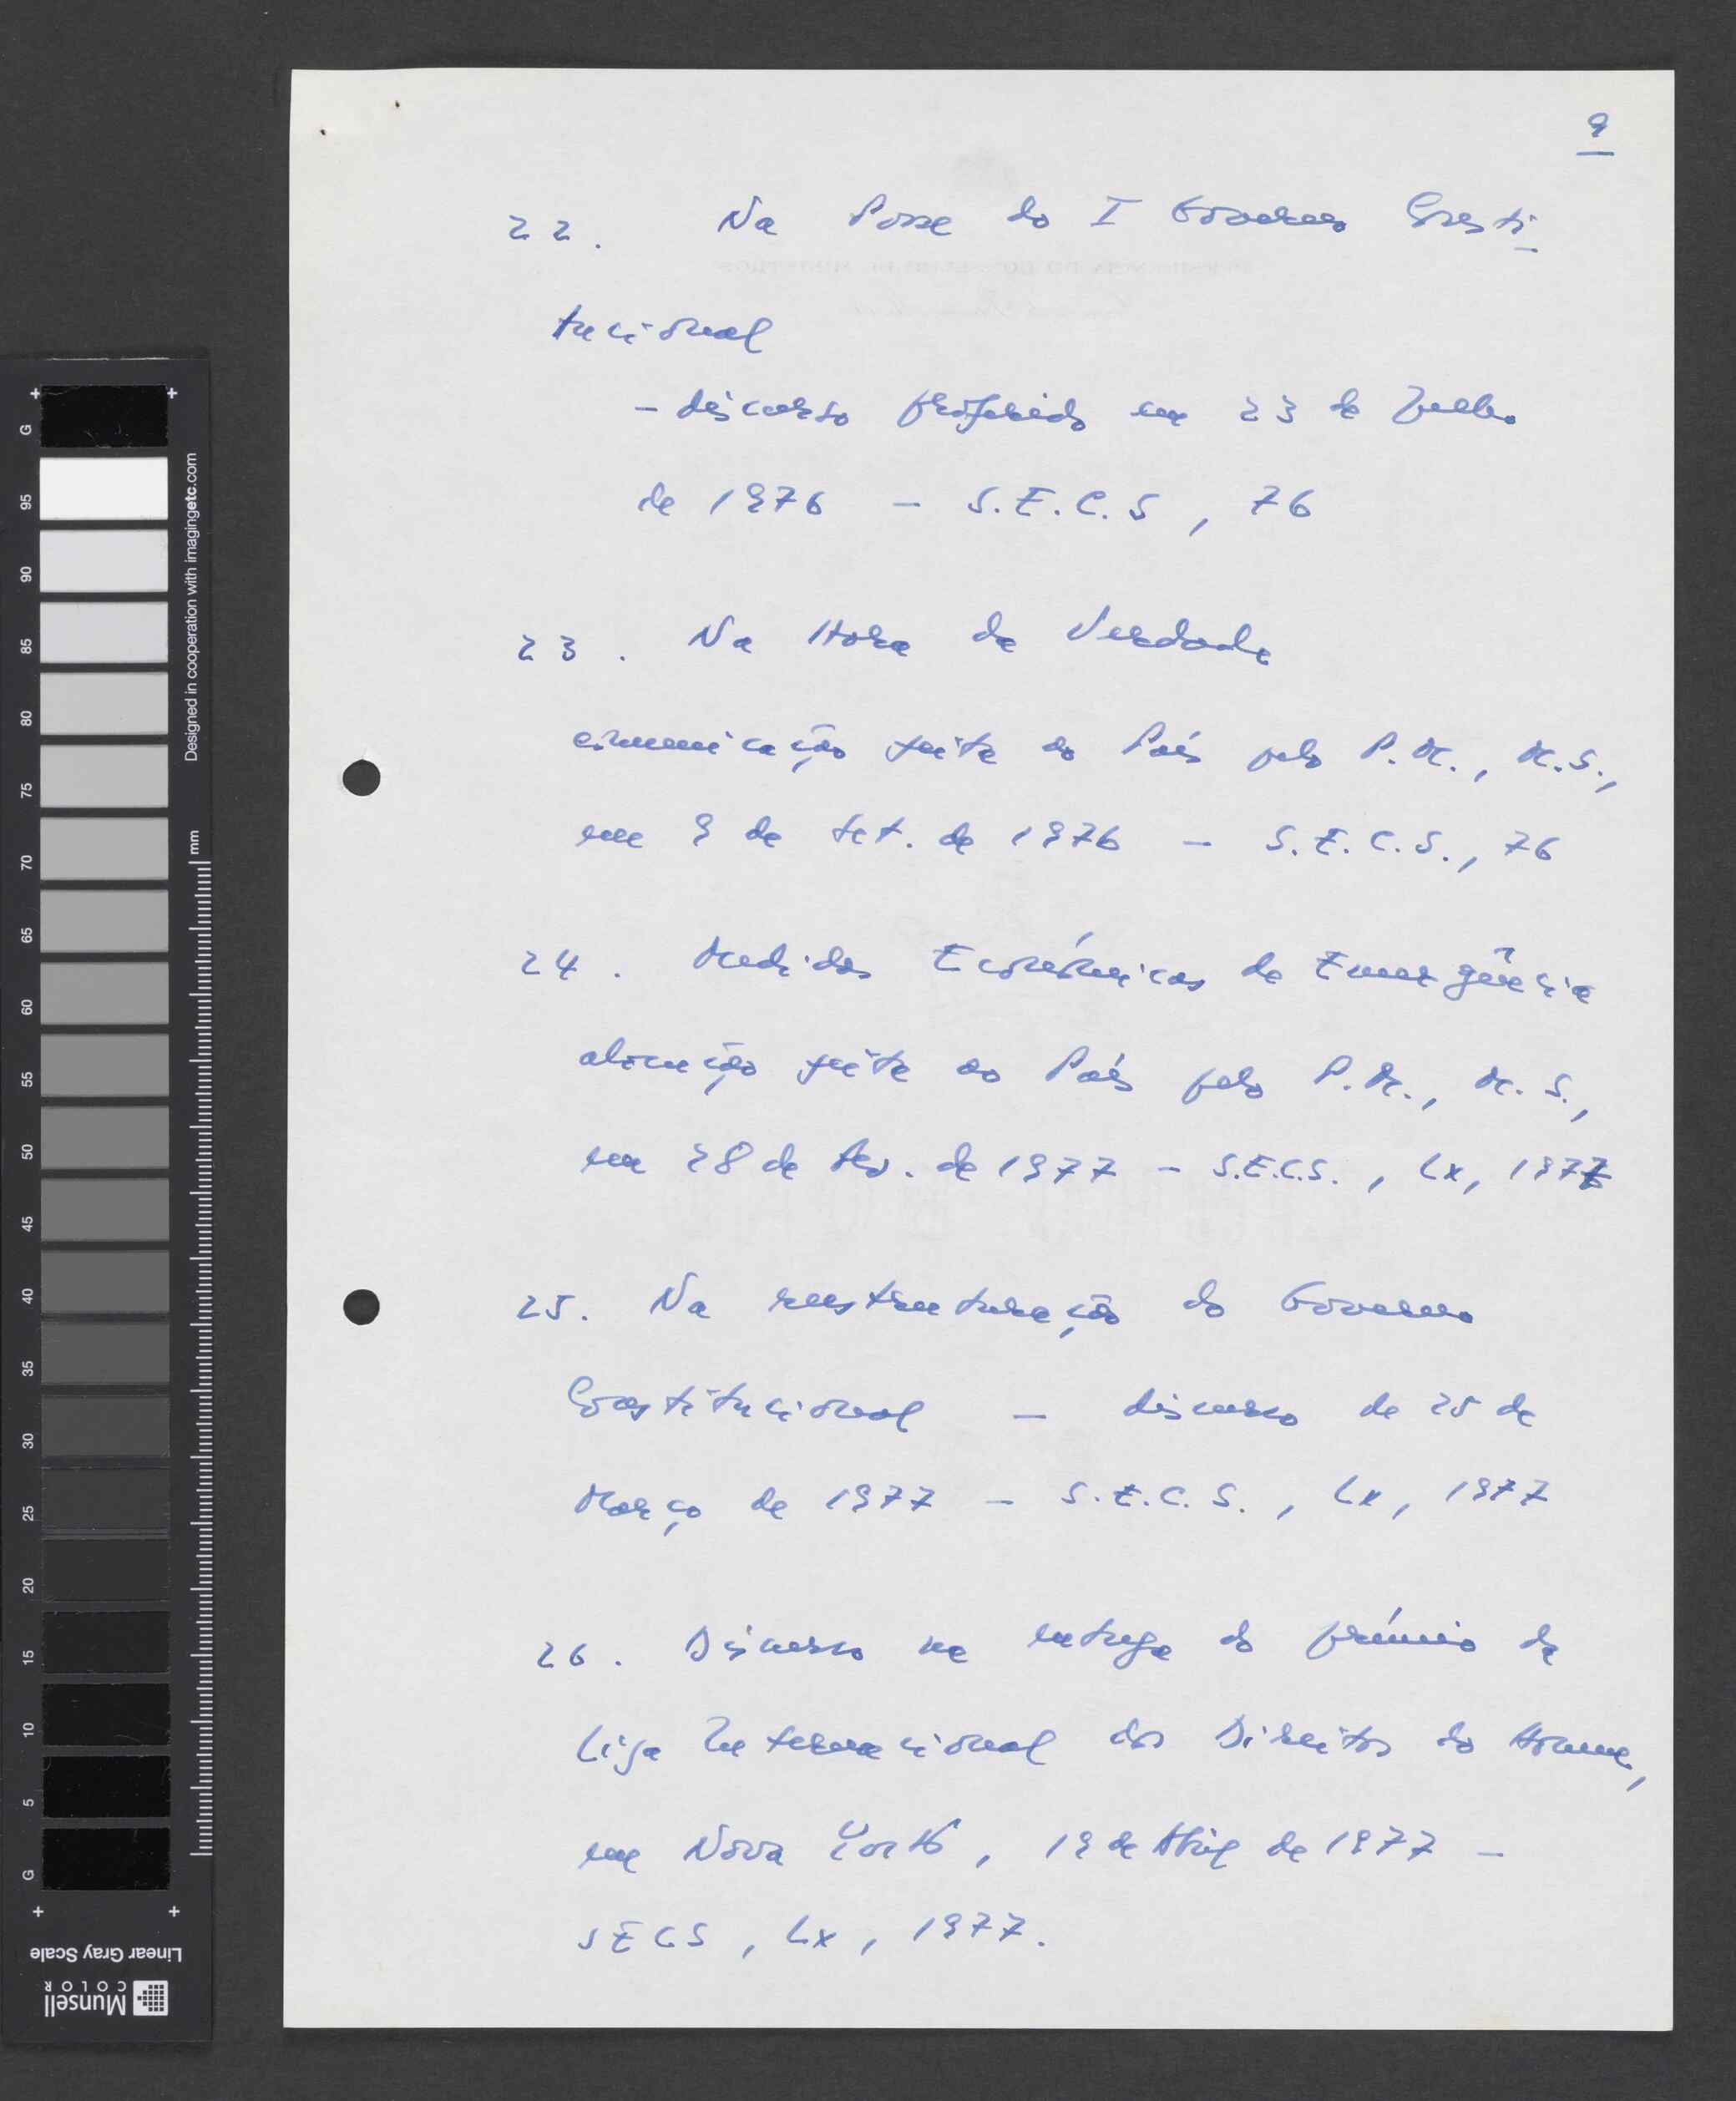 9
22. Na Posse do I Governo Consti-
tucional
- discurso proferido em 23 de Julho
de 1976 - S.E.C.S, 76
23. Na Hora da Verdade
comunicação feita ao País pelo P.M., M.S.,
em 9 de Set. de 1976 - S.E.C.S., 76
24. Medidas Económicas de Emergência
alocução feita ao País pelo P.M., M.S.,
em 28 de Fev. de 1977 - S.E.C.S., Lx, 1977
25. Na reestruturação do Governo
Constitucional - discurso de 25 de
Março de 1977 - S.E.C.S., Lx, 1977
26. Discurso na entrega do prémio da
Liga Internacional dos Direitos do Homem,
em Nova York, 19 de Abril de 1977 -
SECS, Lx, 1977.
G 95 90 85 80 75 70 65 60 55 50 45 40 35 30 25 20 15 10 5 G
Designed in cooperation with imagingetc.com
mm
Linear Gray Scale
Munsell
COLOR